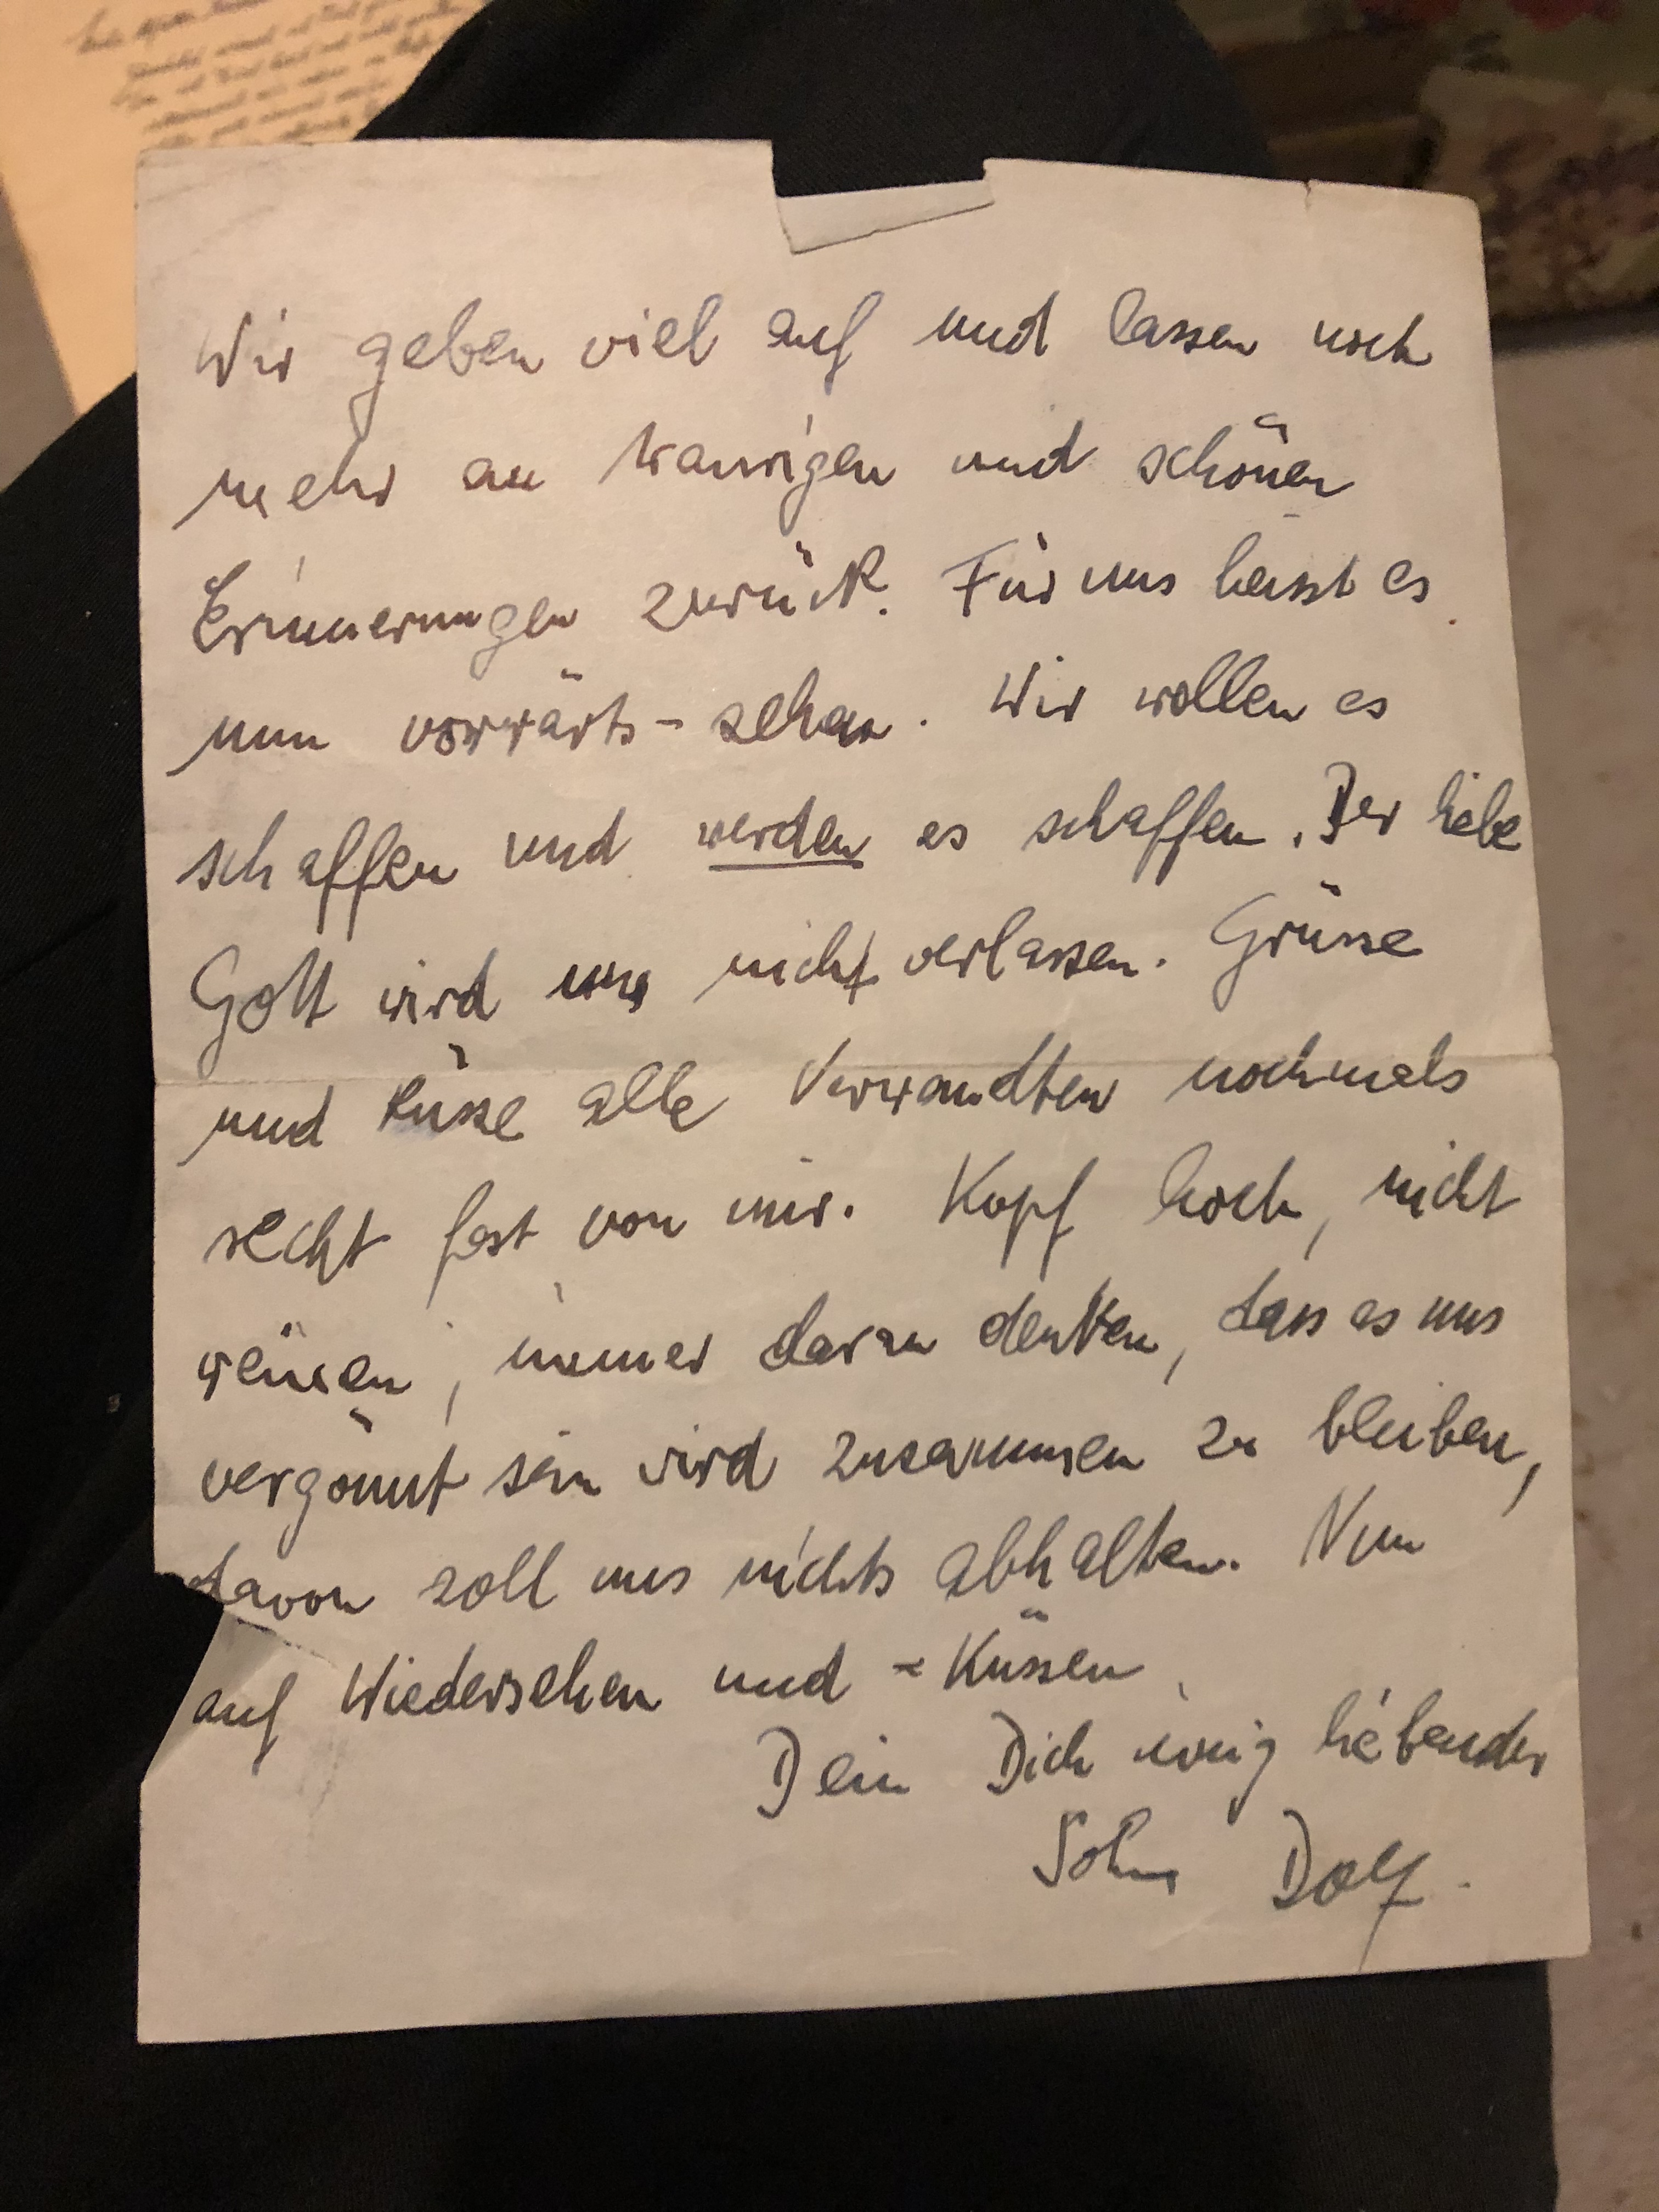 Wir geben viel auf und lassen noch
mehr an traurigen und schönen
Erinnerungen zurück. Für uns heisst es
nun vorwärts-sehen. Wir wollen es
schaffen und werden es schaffen. Der liebe
Gott wird uns nicht verlassen. Grüsse
und küsse alle Verwandten nochmals
recht fest von mir. Kopf hoch, nicht
weinen, immer daran denken, dass es uns
vergönnt sein wird zusammen zu bleiben,
davon soll uns nichts abhalten. Nun
auf Wiedersehen und -Küssen
Dein Dich ewig liebender
Sohn Dolf.